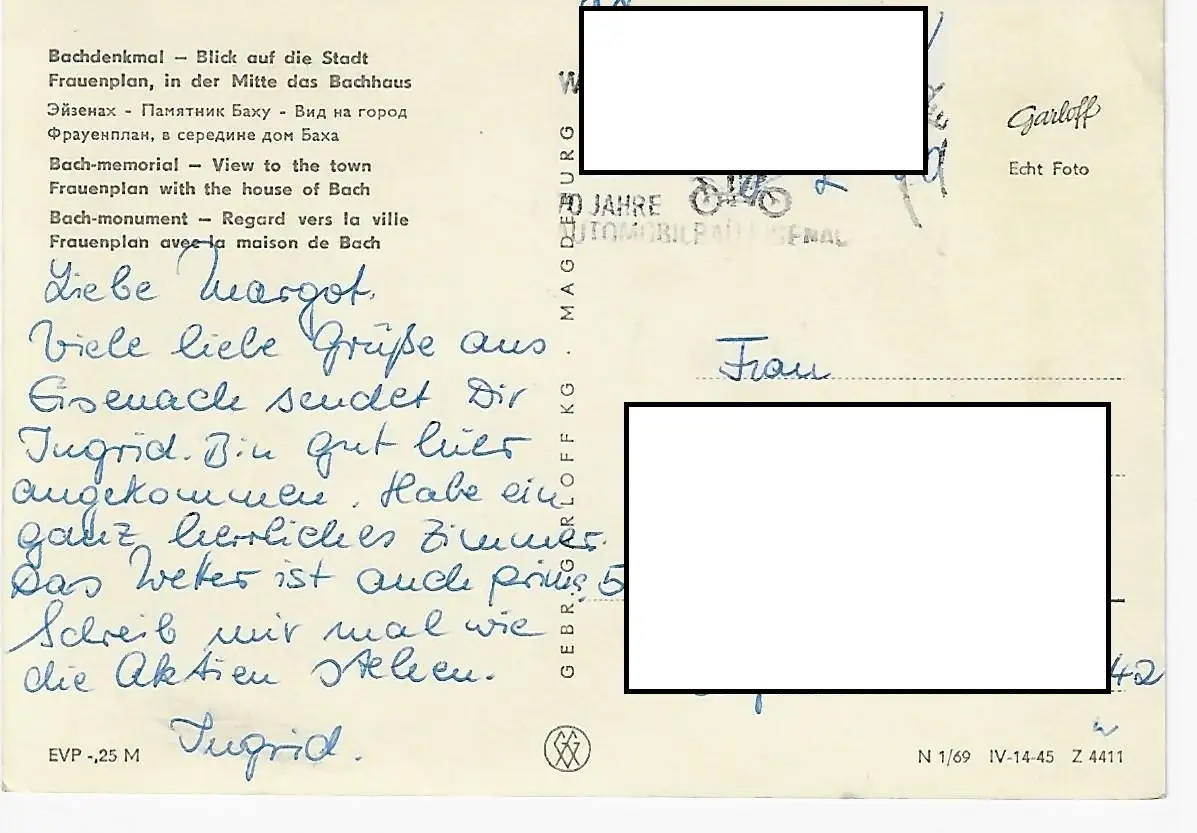 Bachdenkmal – Blick auf die Stadt
Frauenplan, in der Mitte das Bachhaus
Эйзенах - Памятник Баху - Вид на город
Фрауенплан, в середине дом Баха
Bach-memorial – View to the town
Frauenplan with the house of Bach
Bach-monument – Regard vers la ville
Frauenplan avec la maison de Bach
Liebe Margot.
Viele liebe Grüße aus
Eisenach sendet Dir
Ingrid. Bin gut hier
angekommen. Habe ein
ganz herrliches Zimmer.
Das Wetter ist auch prima,
Schreib mir mal wie
die Aktien stehen.
Ingrid.
EVP -,25 M
GEBR. GARLOFF KG . MAGDEBURG
70 JAHRE
AUTOMOBILBAU EISENAC
Garloff
Echt Foto
Frau
42
N 1/69 IV-14-45 Z 4411